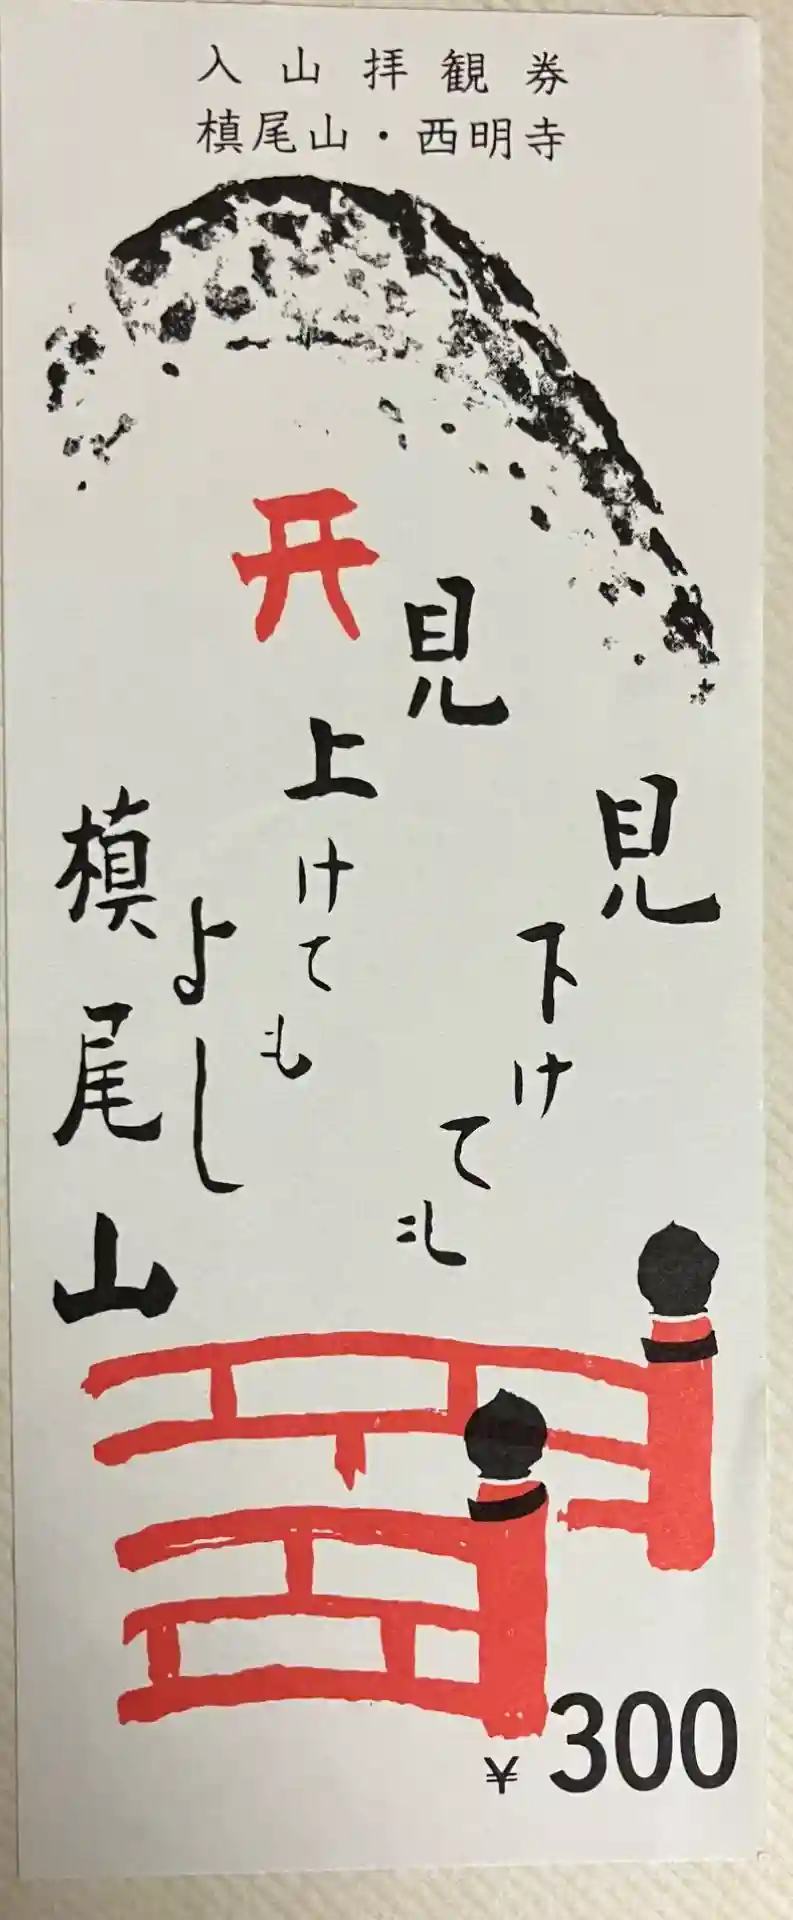 入山拝観券
槙尾山・西明寺
見下けても
見上けても
よし
槙尾山
¥300